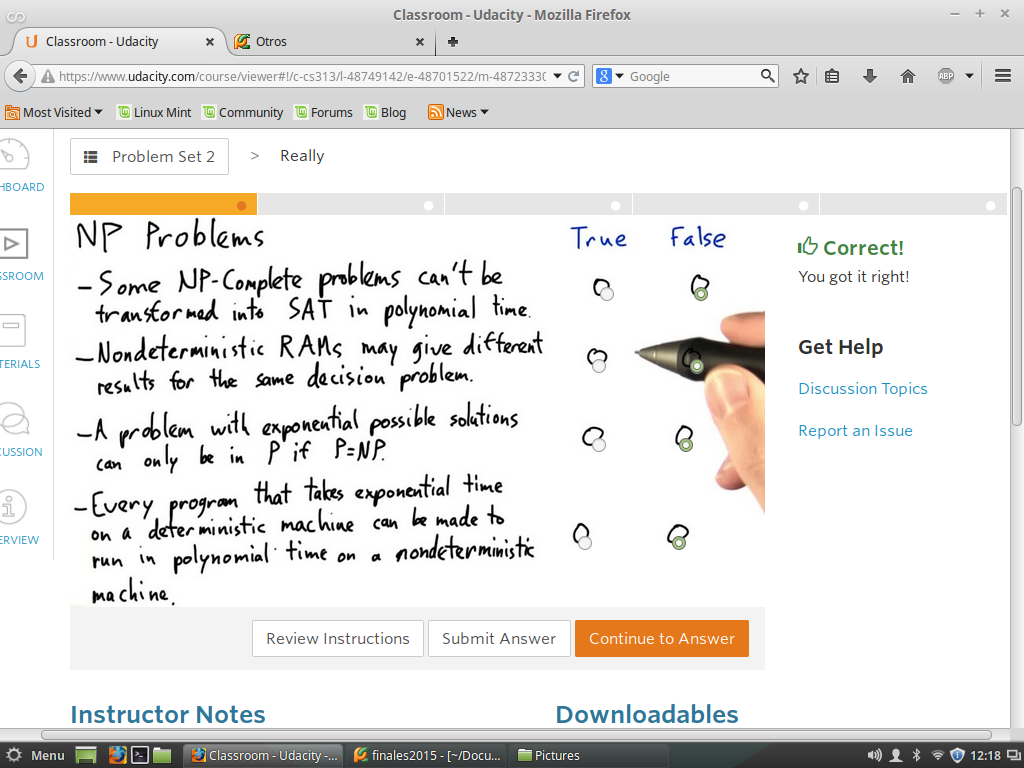 Classroom - Udacity - Mozilla Firefox
Classroom - Udacity
Otros
https://www.udacity.com/course/viewer#!/c-cs313/l-48749142/e-48701522/m-48723330
Google
ABP
Most Visited
Linux Mint
Community
Forums
Blog
News
Problem Set 2 > Really
HBOARD
SSROOM
TERIALS
CUSSION
ERVIEW
NP Problems
True False
- Some NP-Complete problems can't be
transformed into SAT in polynomial time.
- Nondeterministic RAMs may give different
results for the same decision problem.
- A problem with exponential possible solutions
can only be in P if P=NP.
- Every program that takes exponential time
on a deterministic machine can be made to
run in polynomial time on a nondeterministic
machine.
Correct!
You got it right!
Get Help
Discussion Topics
Report an Issue
Review Instructions
Submit Answer
Continue to Answer
Instructor Notes
Downloadables
Menu
Classroom - Udacity -...
finales2015 - [~/Docu...
Pictures
12:18